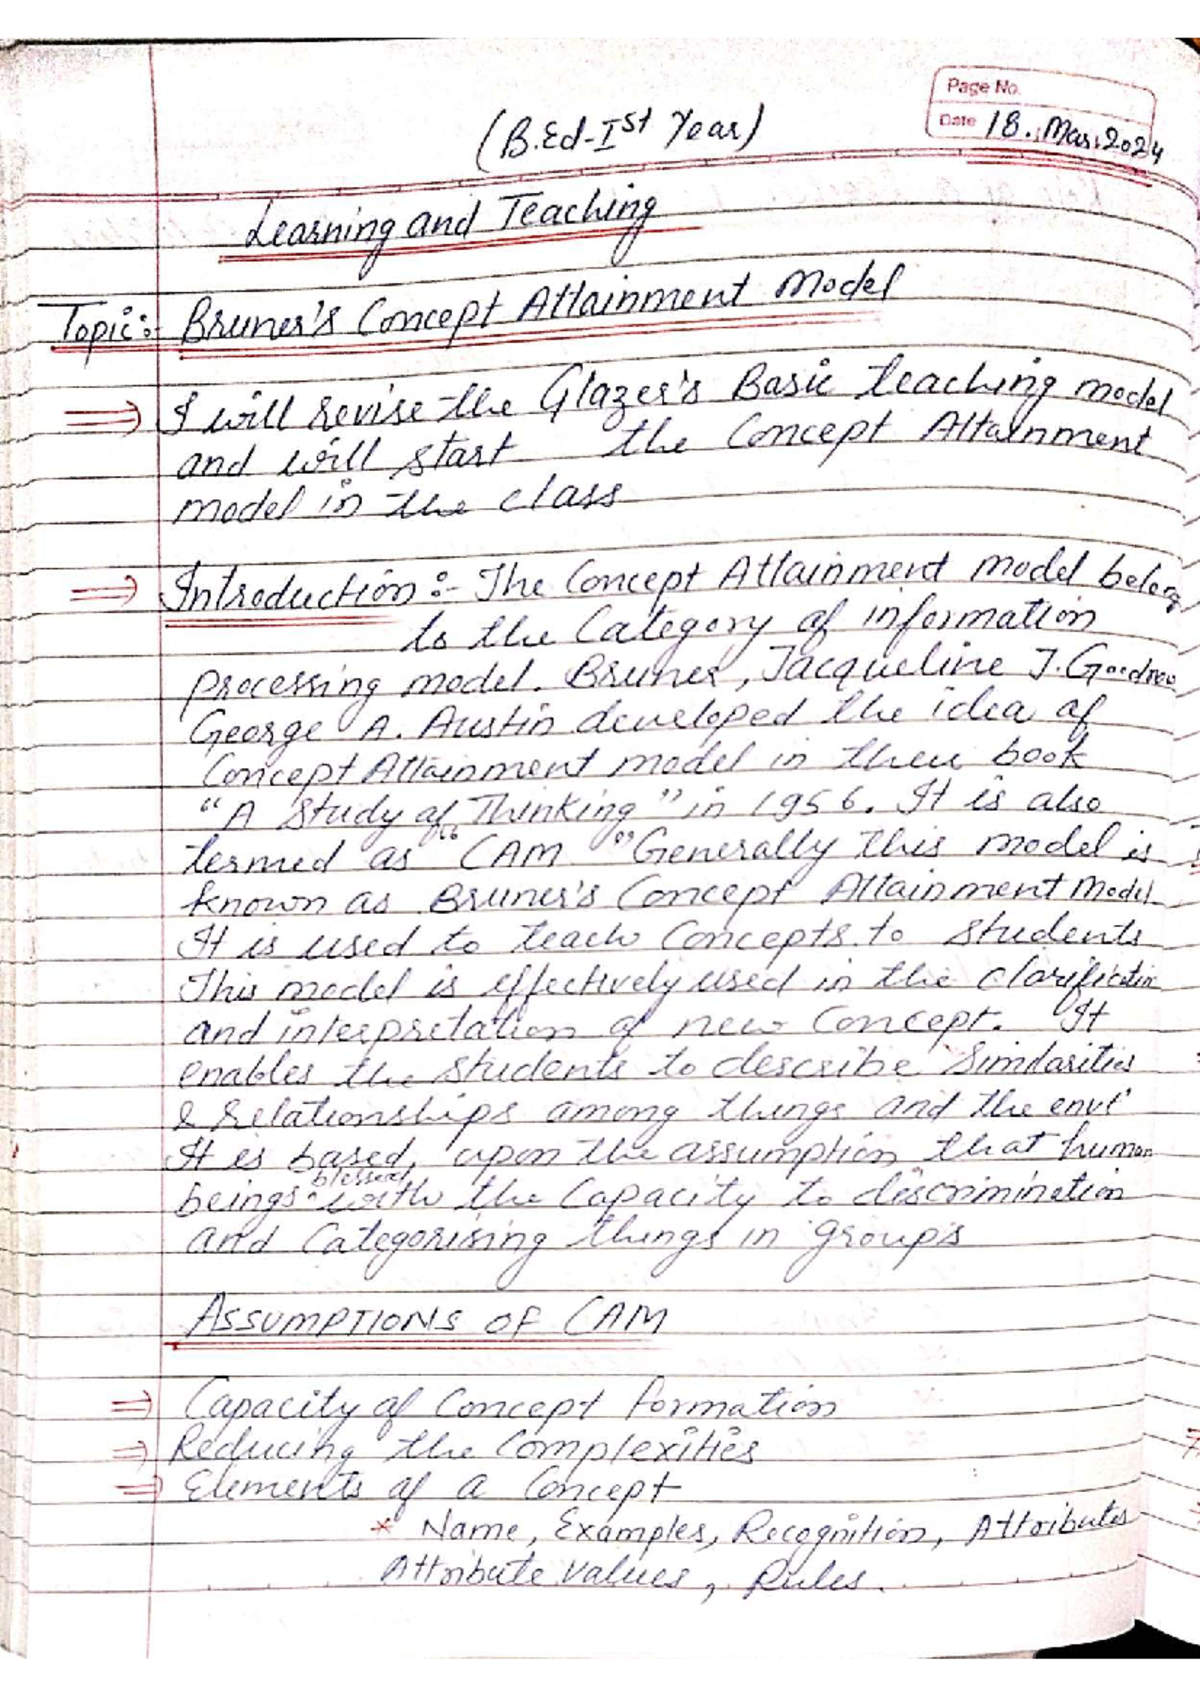 Page No.
Date 18. Mar. 2024
(B.Ed-Ist Year)
Learning and Teaching
Topic:- Bruner's Concept Attainment Model
⇒ I will revise the Glazer's Basic teaching model
and will start the Concept Attainment
model in the class
⇒ Introduction:- The Concept Attainment model belong
to the Category of information
processing model. Bruner, Jacqueline J. Goodnow
George A. Austin developed the idea of
Concept Attainment model in their book
"A Study of Thinking" in 1956. It is also
termed as "CAM" Generally this model is
known as Bruner's Concept Attainment Model
It is used to teach Concepts to students
This model is effectively used in the clarification
and interpretation of new Concept. It
enables the students to describe Similarities
& relationships among things and the envt
It is based upon the assumption that human
beings blessed with the Capacity to discrimination
and Categorising things in groups
ASSUMPTIONS OF CAM
⇒ Capacity of Concept formation
⇒ Reducing the Complexities
⇒ Elements of a Concept
* Name, Examples, Recognition, Attributes
Attribute Values, Rules.